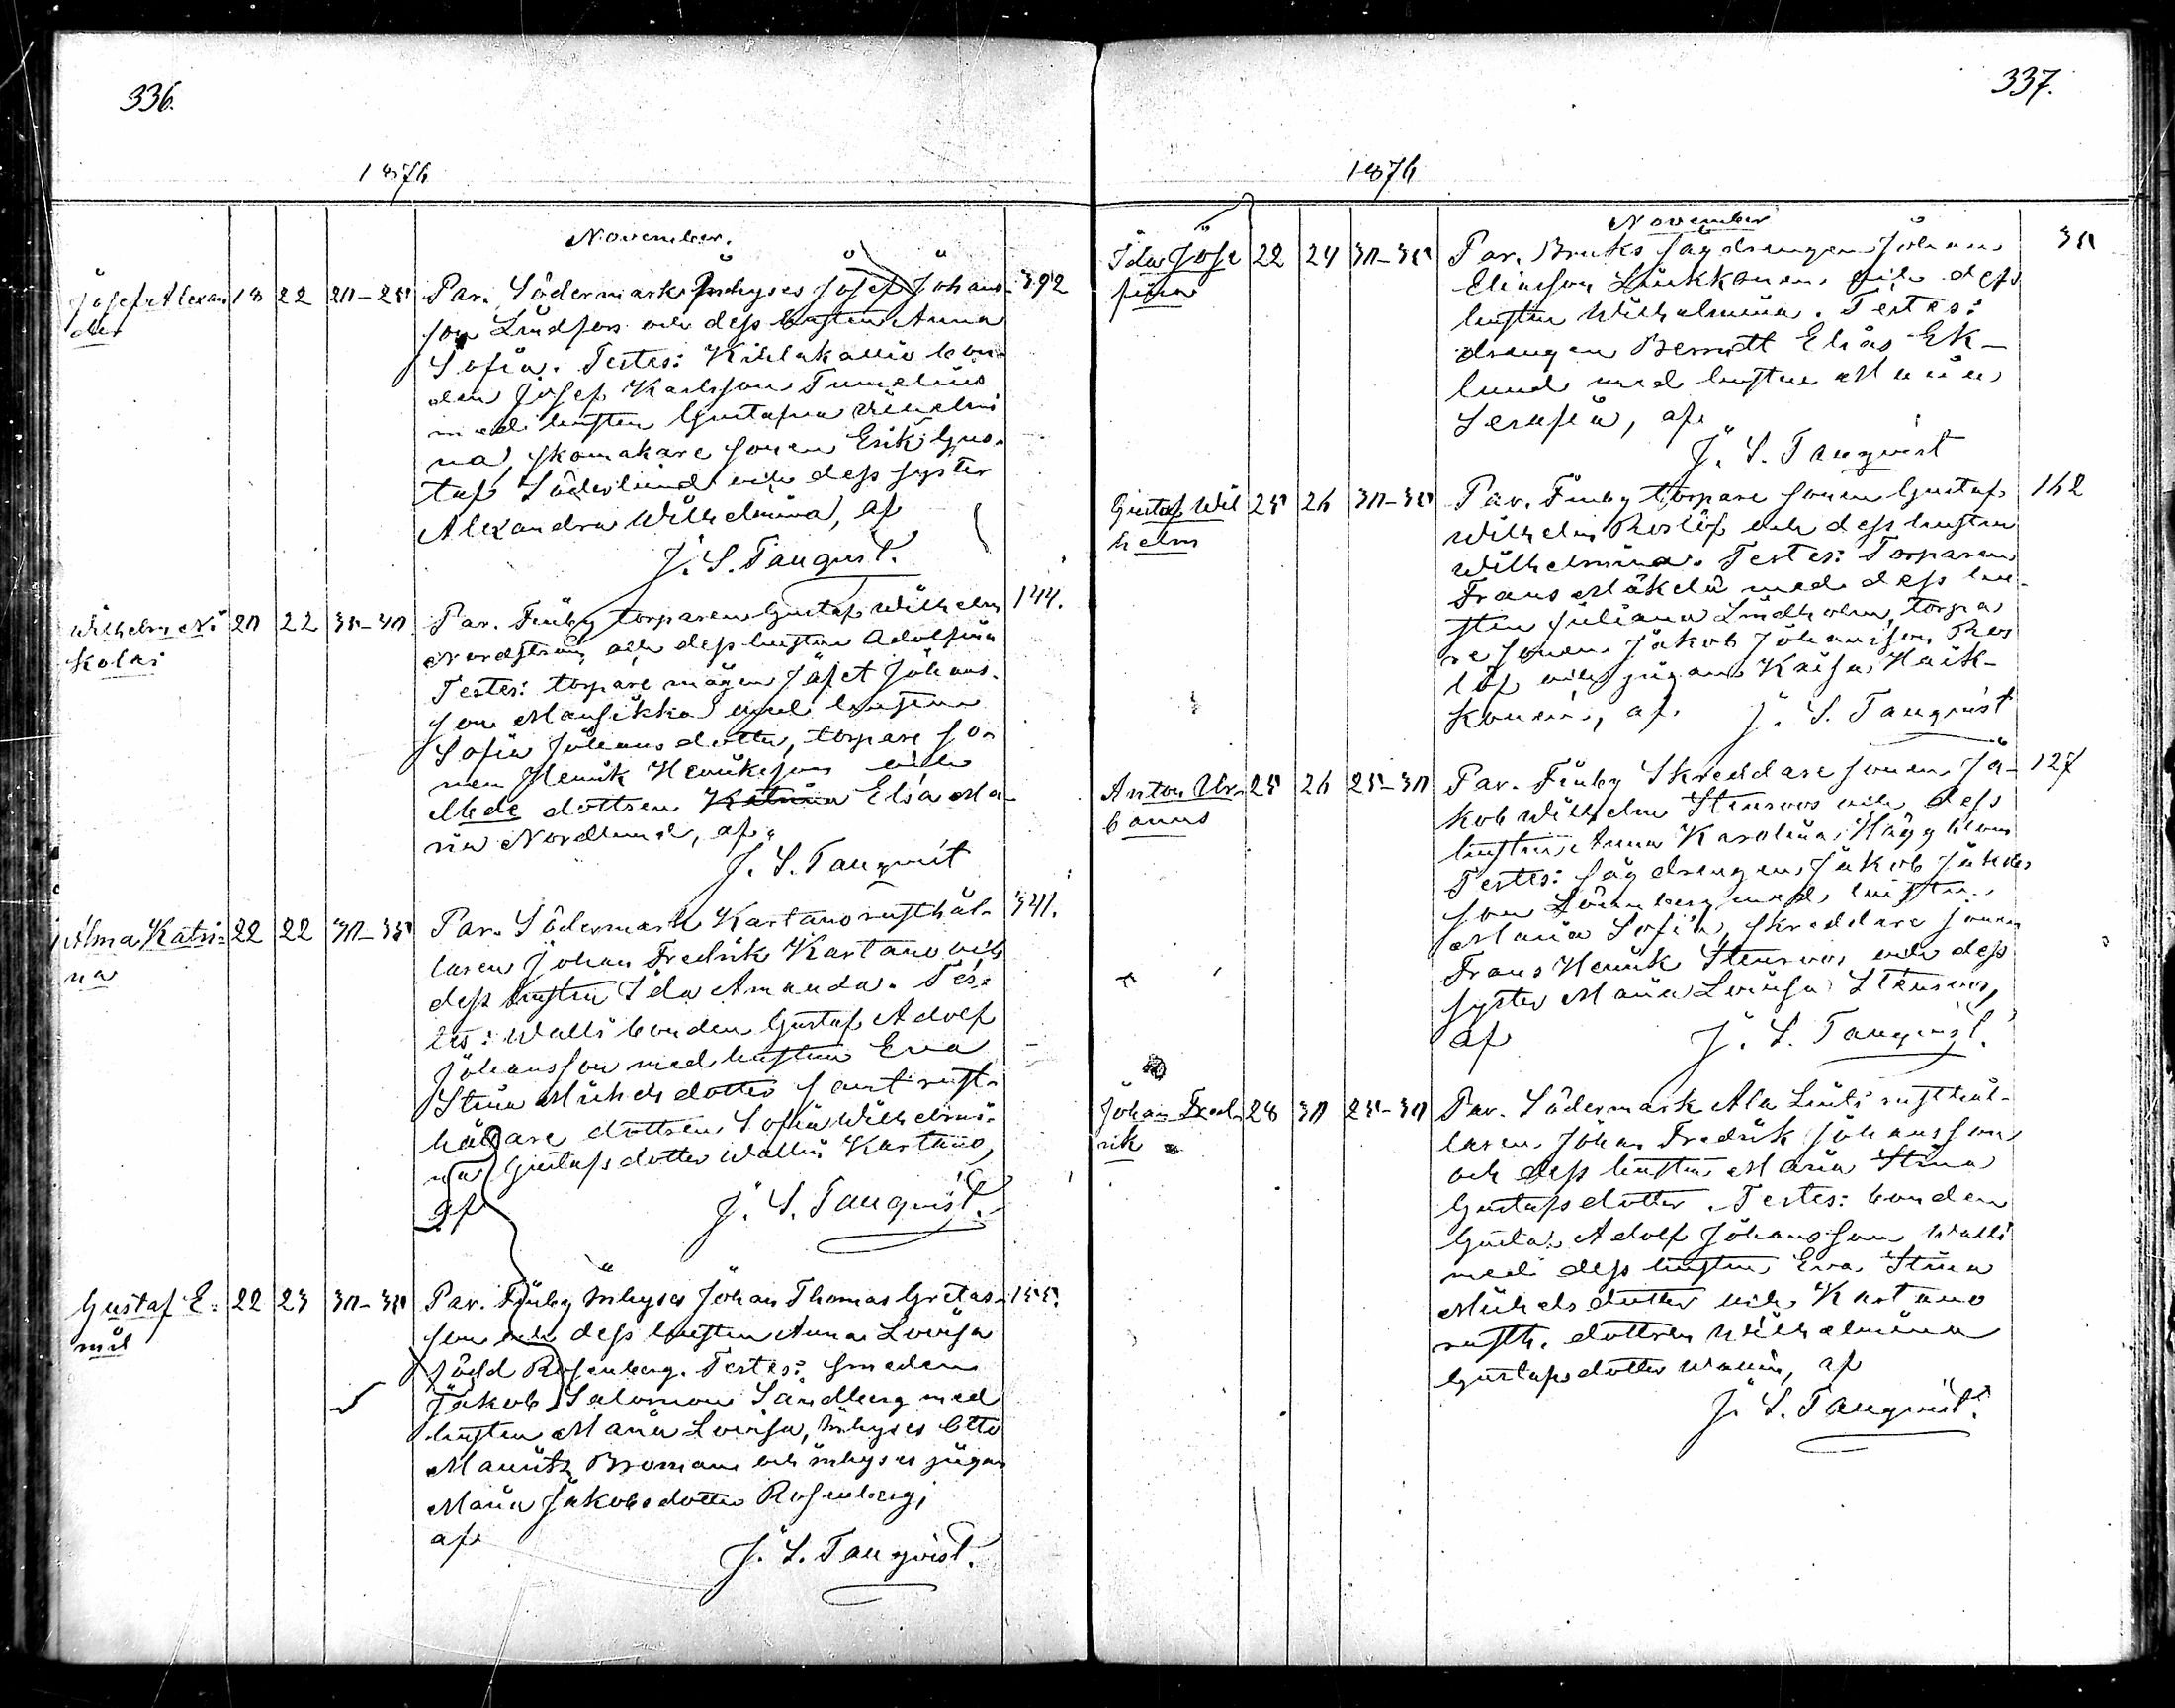 336.
1876
November.
Josef Alexan
der
18 22 20-25
Par. Södermark Inhyses Josef Johans- 392
son Lindfors och dess hustru Anna
Sofia. Testes: Kihlakallio bon-
den Josef Karlsson Tumelius
med hustru Gustafva Wilhelmi
na, skomakare sonen Erik Gus-
taf Söderlund och dess syster
Alexandra Wilhelmina, af
J. S. Tanqvist.
Wilhelm Ni
kolai
20 22 35-40
Par. Finby torparen Gustaf Wilhelm 144.
Nordström och dess hustru Adolfina
Testes: torpare mågen Jafet Johans-
son Mansikka med hustru
Sofia Johansdotter, torpare so-
nen Henrik Henriksson och
dottren Katrina Elsa Ma-
ria Nordlund, af
J. S. Tanqvist
Alma Katri-
na
22 22 30-35
Par. Södermark Kartano rusthål- 341.
laren Johan Fredrik Kartano och
dess hustru Ida Amanda. Tes-
tes: Walli bonden Gustaf Adolf
Johansson med hustru Eva
Stina Michelsdotter samt rust-
hållare dottren Sofia Wilhelmi-
na Gustafsdotter Wallin Kartano,
af
J. S. Tanqvist.
Gustaf E-
mil
22 23 30-35
Par. Finby Inhyses Johan Thomas Gretas- 155.
son och dess hustru Anna Lovisa
född Rosenberg. Testes: smeden
Jakob Salomon Sandberg med
hustru Maria Lovisa, Inhyses Otto
Mauritz Broman och inhyses pigan
Maria Jakobsdotter Rosenberg,
af
J. S. Tanqvist.
337.
1876
November
Ida Jose
fina
22 24 30-35
Par. Bruks sågdrengen Johan 35
Eliasson Linkkonen och dess
hustru Wilhelmina. Testes:
drengen Berndt Elias Ek-
lund med hustru Maria
Serafia, af
J. S. Tanqvist
Gustaf Wil
helm
25 26 30-35
Par. Finby torpare sonen Gustaf 162
Wilhelm Roslöf och dess hustru
Wilhelmina. Testes: Torparen
Frans Mäkelä med dess hu-
stru Juliana Lindholm, torpa
re sonen Jakob Johansson Ros
löf och pigan Kaisa Haik-
konen, af J. S. Tanqvist
Anton Ur-
banus
25 26 25-30
Par. Finby Skreddare sonen Ja- 127
kob Wilhelm Stenroos och dess
hustru Anna Karolina Häggblom
Testes: sågdrengen Jakob Jakobs
son Lönnberg med hustru
Maria Sofia, skreddare sonen
Frans Henrik Stenroos och dess
syster Maria Lovisa Stenroos,
af
J. S. Tanqvist.
Johan Fred-
rik
28 30 25-30
Par. Södermark Ala Linti rusthål-
laren Johan Fredrik Johansson
och dess hustru Maria Stina
Gustafsdotter. Testes: bonden
Gustaf Adolf Johansson Walli
med dess hustru Eva Stina
Michelsdotter och Kartano
rusth. dottren Wilhelmina
Gustafsdotter Wallin, af
J. S. Tanqvist.